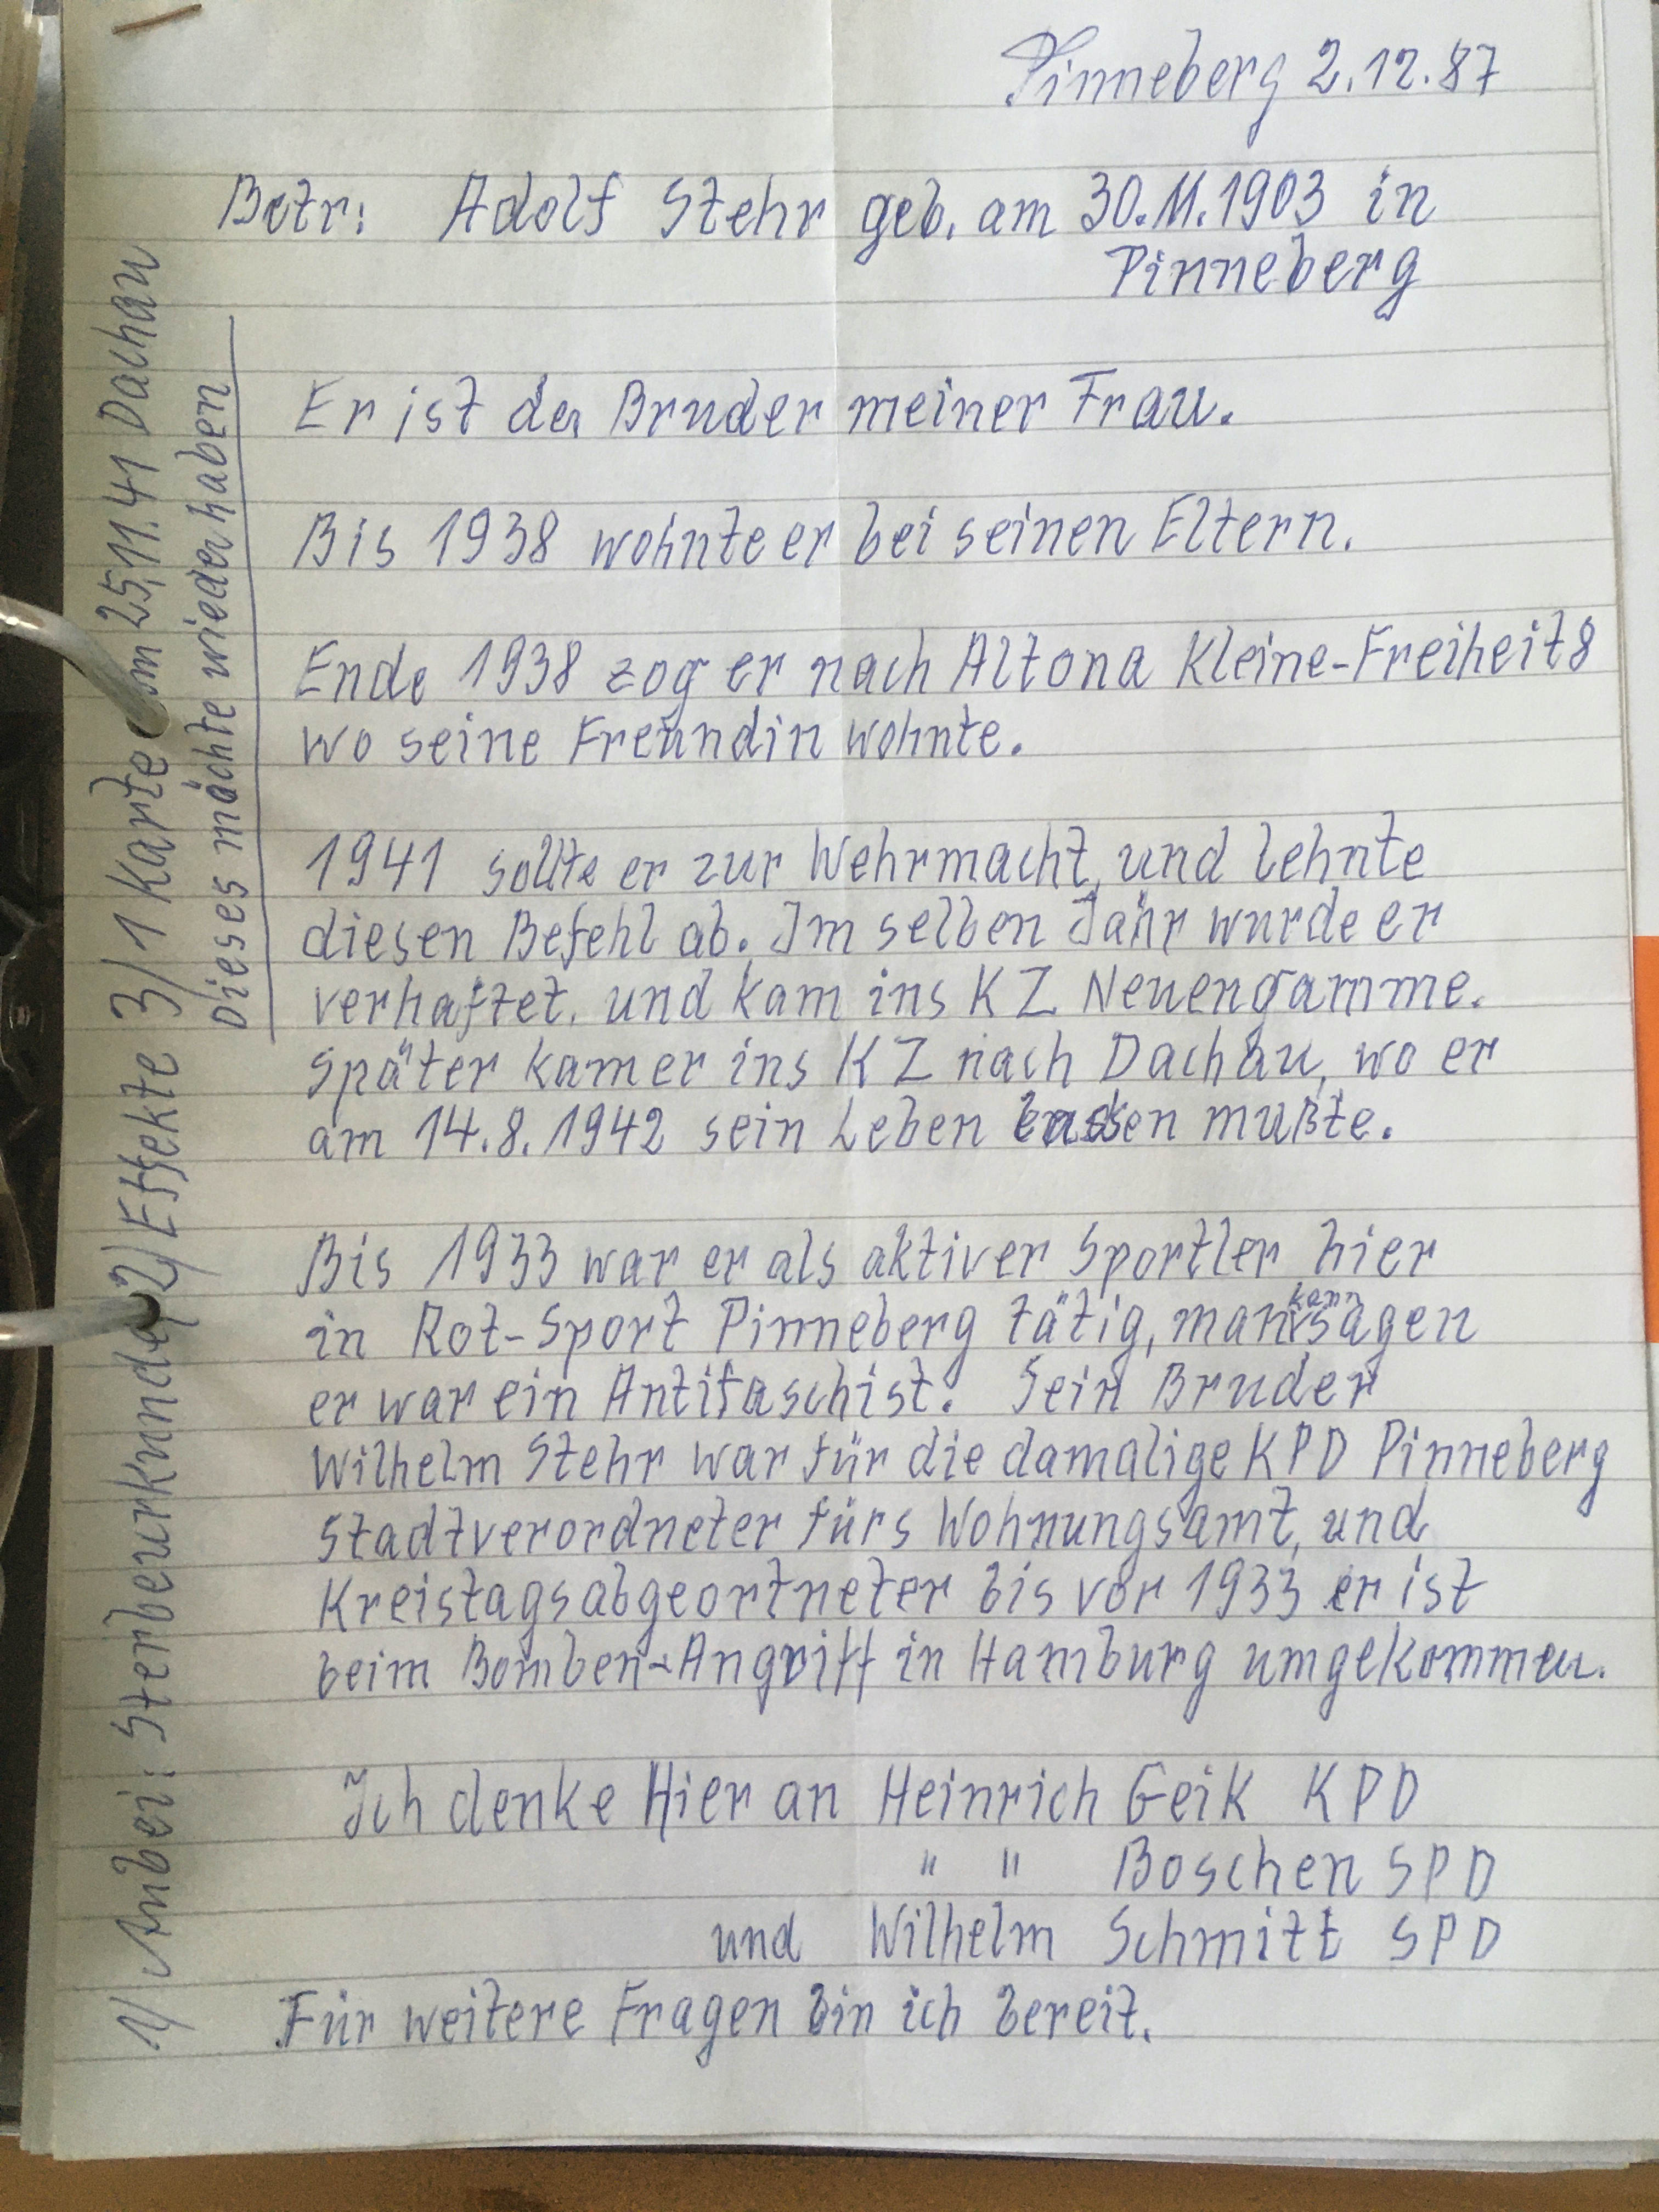 Pinneberg 2.12.87
Betr: Adolf Stehr geb. am 30.11.1903 in
Pinneberg
Er ist der Bruder meiner Frau.
Bis 1938 wohnte er bei seinen Eltern.
Ende 1938 zog er nach Altona Kleine-Freiheit 8
wo seine Freundin wohnte.
1941 sollte er zur Wehrmacht, und lehnte
diesen Befehl ab. Im selben Jahr wurde er
verhaftet. und kam ins KZ Neuengamme.
Später kam er ins KZ nach Dachau, wo er
am 14.8.1942 sein Leben lassen mußte.
Bis 1933 war er als aktiver Sportler hier
in Rot-Sport Pinneberg tätig, man kann sagen
er war ein Antifaschist. Sein Bruder
Wilhelm Stehr war für die damalige KPD Pinneberg
Stadtverordneter fürs Wohnungsamt, und
Kreistagsabgeortneter bis vor 1933 er ist
beim Bomben-Angriff in Hamburg umgekommen.
Ich denke Hier an Heinrich Geik KPD
" " Boschen SPD
und Wilhelm Schmitt SPD
Für weitere Fragen bin ich bereit.
1/ Anbei: Sterbeurkunde, 2/ Effekte 3/ 1 Karte 25.11.41 Dachau
Dieses möchte wieder haben